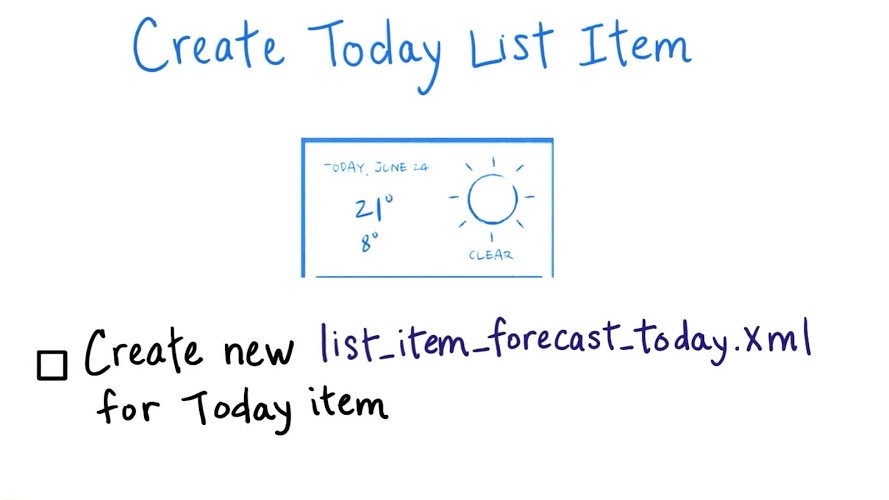 Create Today List Item
TODAY, JUNE 24
21°
8°
CLEAR
Create new list_item_forecast_today.xml
for Today item